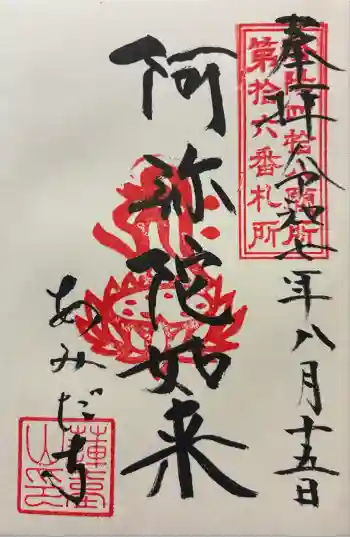 奉拝 令和七年八月十五日
四拾八願所
第拾六番札所
阿弥陀如来
あみだ寺